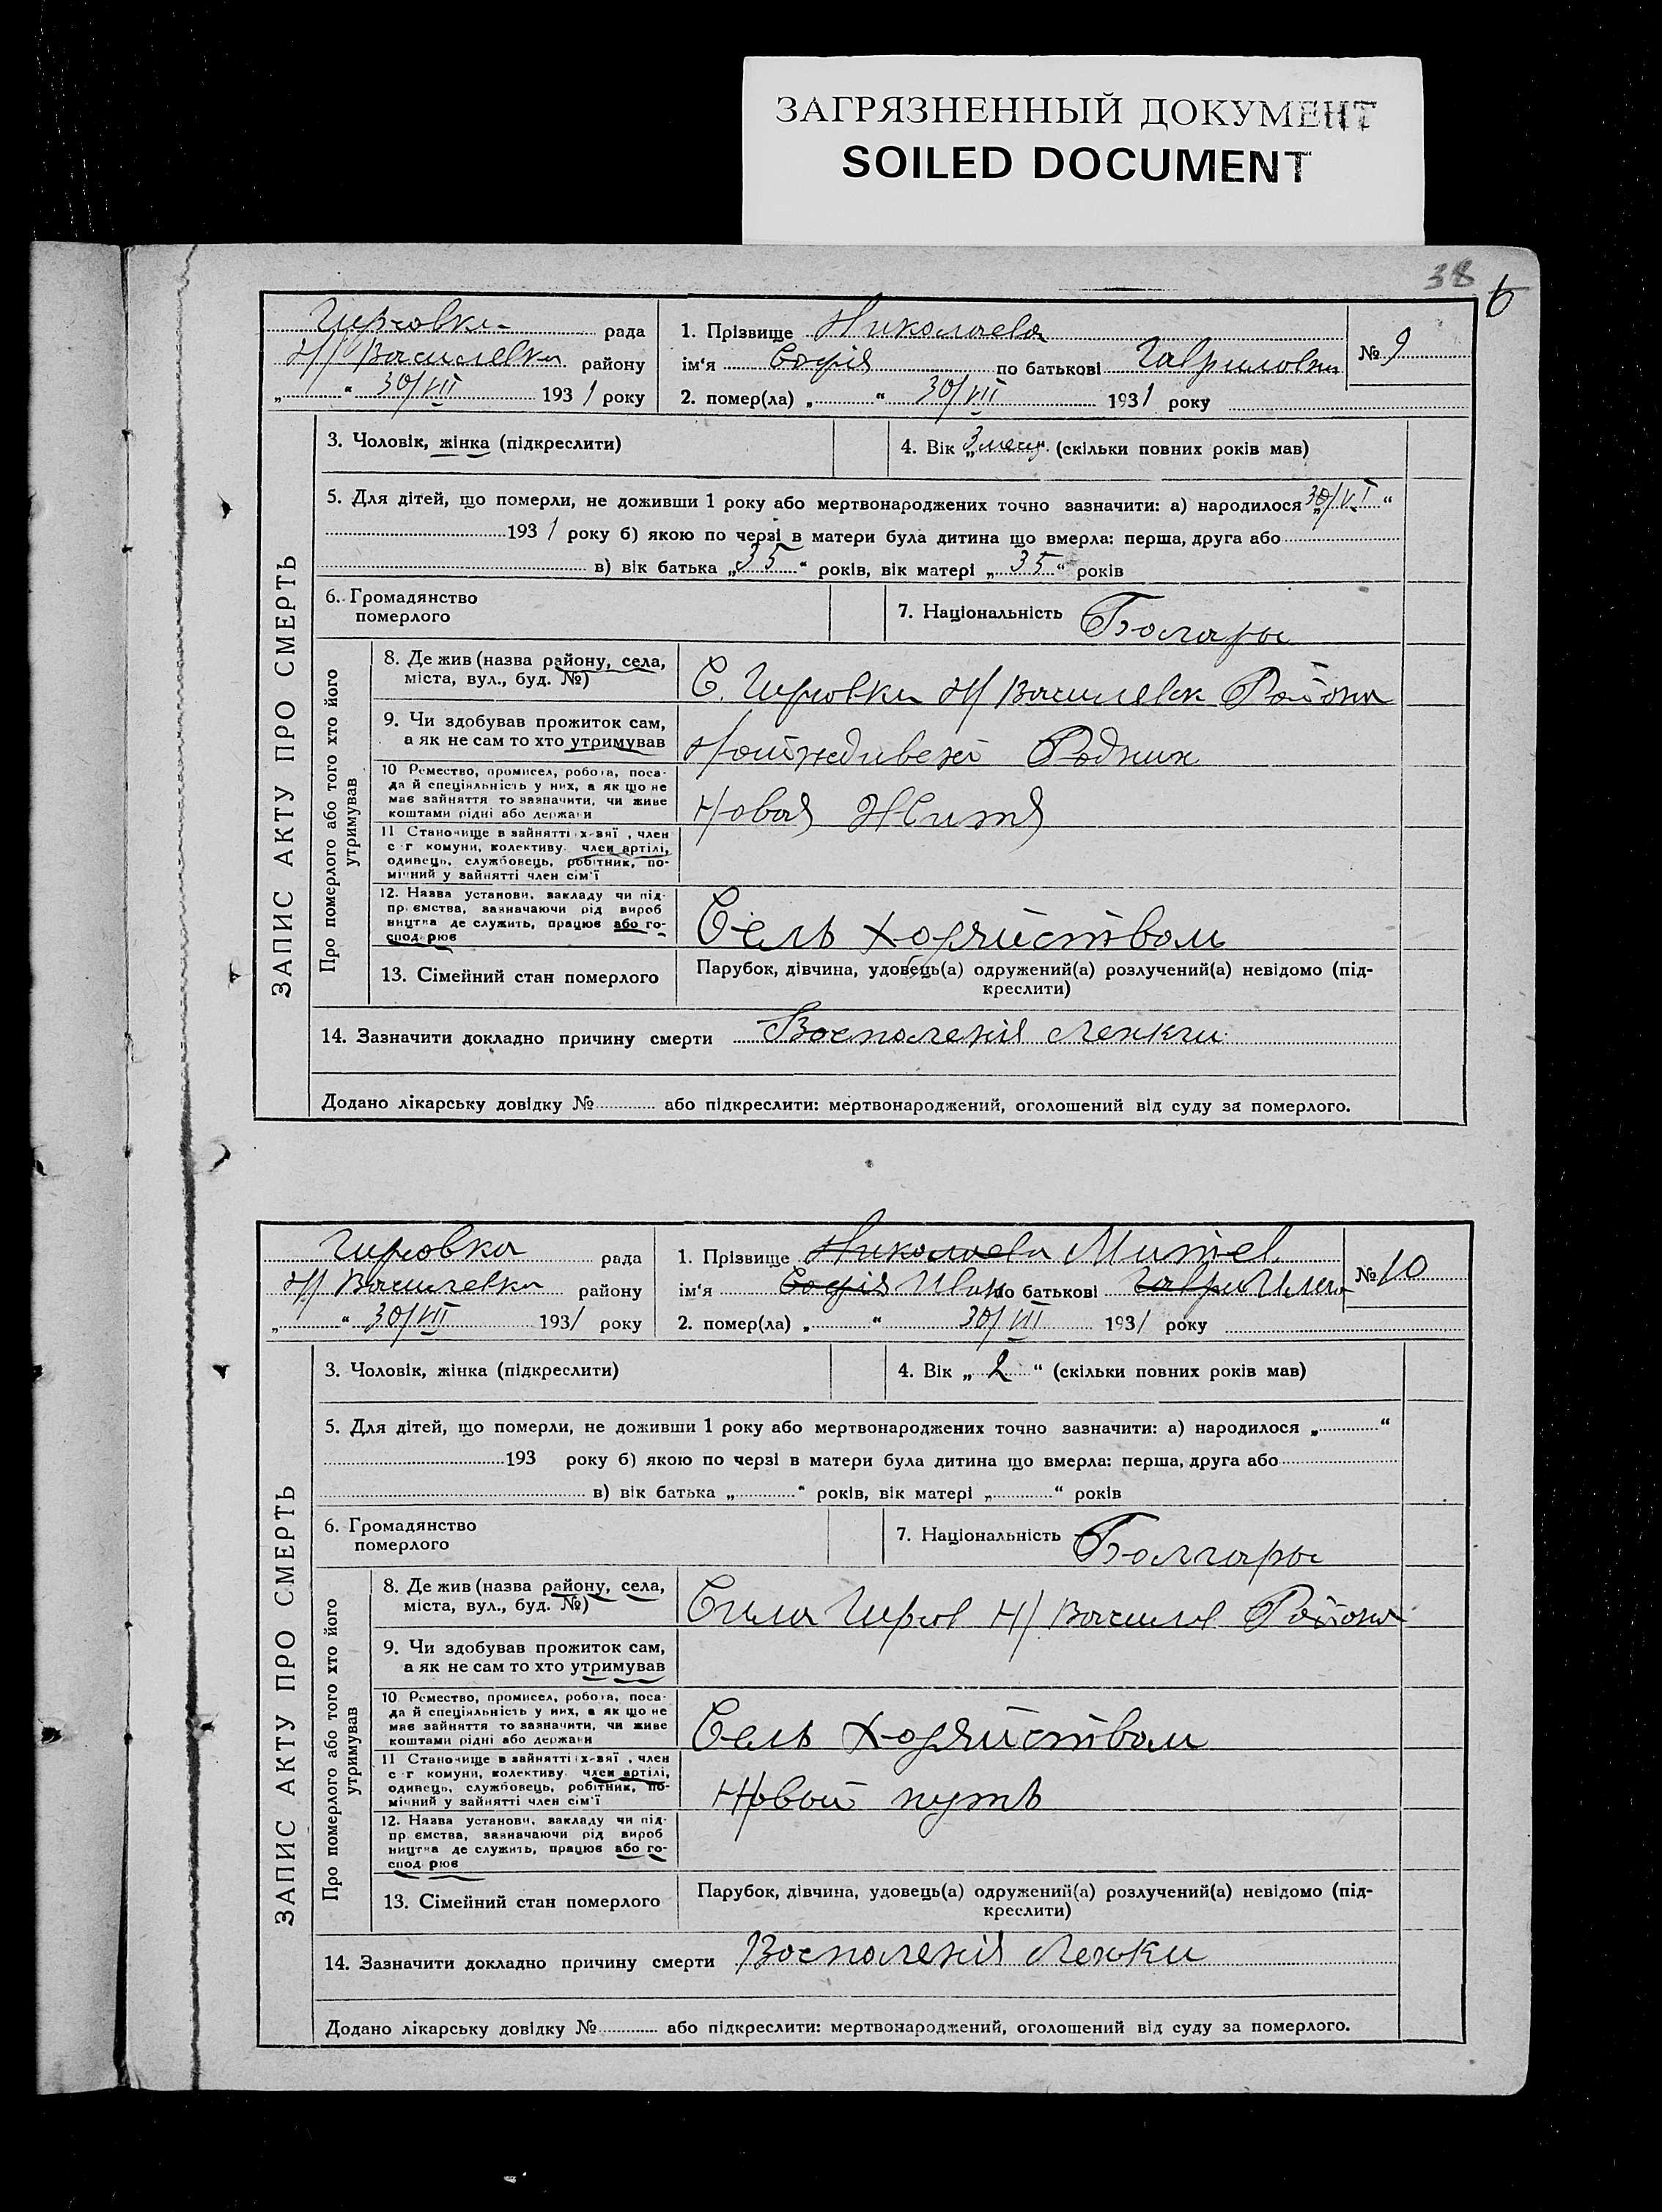 ЗАГРЯЗНЕННЫЙ ДОКУМЕНТ
SOILED DOCUMENT
38 6
Гирсовка рада
Н/Василевка району
„ “ 30/VII 1931 року
1. Прізвище Николаева
ім‘я Софія по батькові Гавриловна
2. помер(ла) „ “ 30/VII 1931 року
№ 9
ЗАПИС АКТУ ПРО СМЕРТЬ
3. Чоловік, жінка (підкреслити)
4. Вік „3 месц“ (скільки повних років мав)
5. Для дітей, що померли, не доживши 1 року або мертвонароджених точно зазначити: а) народилося „30/VI“
1931 року б) якою по черзі в матери була дитина що вмерла: перша, друга або
в) вік батька „35“ років, вік матері „35“ років
6. Громадянство
померлого
7. Національність Болгары
Про померлого або того хто його
утримував
8. Де жив (назва району, села,
міста, вул., буд. №)
С. Гирсовка Н/Василевск Района
9. Чи здобував прожиток сам,
а як не сам то хто утримував
10 Ремество, промисел, робота, поса-
да й спеціяльність у них, а як що не
має зайняття то зазначити, чи живе
коштами рідні або держави
Новая Житя
11 Становище в зайнятті х-вяї, член
с г комуни, колективу член артілі,
одинець, службовець, робітник, по-
мічний у зайнятті член сім‘ї
12. Назва установи, закладу чи під-
пр ємства, зазначаючи рід вироб
ництва де служить, працює або го-
спод рює
Сель хозяйством
13. Сімейний стан померлого
Парубок, дівчина, удовець(а) одружений(а) розлучений(а) невідомо (під-
креслити)
14. Зазначити докладно причину смерти Воспаления Легкии
Додано лікарську довідку № або підкреслити: мертвонароджений, оголошений від суду за померлого.
Гирсовка рада
Н/Василевка району
„ “ 30/VII 1931 року
1. Прізвище Николаева Митев
ім‘я Софія Иван по батькові Гаври Ильич
2. помер(ла) „ “ 30/VII 1931 року
№ 10
ЗАПИС АКТУ ПРО СМЕРТЬ
3. Чоловік, жінка (підкреслити)
4. Вік „2“ (скільки повних років мав)
5. Для дітей, що померли, не доживши 1 року або мертвонароджених точно зазначити: а) народилося „ “
193 року б) якою по черзі в матери була дитина що вмерла: перша, друга або
в) вік батька „ “ років, вік матері „ “ років
6. Громадянство
померлого
7. Національність Болгары
Про померлого або того хто його
утримував
8. Де жив (назва району, села,
міста, вул., буд. №)
Гирсов Н/Василев Района
9. Чи здобував прожиток сам,
а як не сам то хто утримував
10 Ремество, промисел, робота, поса-
да й спеціяльність у них, а як що не
має зайняття то зазначити, чи живе
коштами рідні або держави
Сель хозяйством
11 Становище в зайнятті х-вяї, член
с г комуни, колективу член артілі,
одинець, службовець, робітник, по-
мічний у зайнятті член сім‘ї
Новой путь
12. Назва установи, закладу чи під-
пр ємства, зазначаючи рід вироб
ництва де служить, працює або го-
спод рює
13. Сімейний стан померлого
Парубок, дівчина, удовець(а) одружений(а) розлучений(а) невідомо (під-
креслити)
14. Зазначити докладно причину смерти Воспаленія Легки
Додано лікарську довідку № або підкреслити: мертвонароджений, оголошений від суду за померлого.